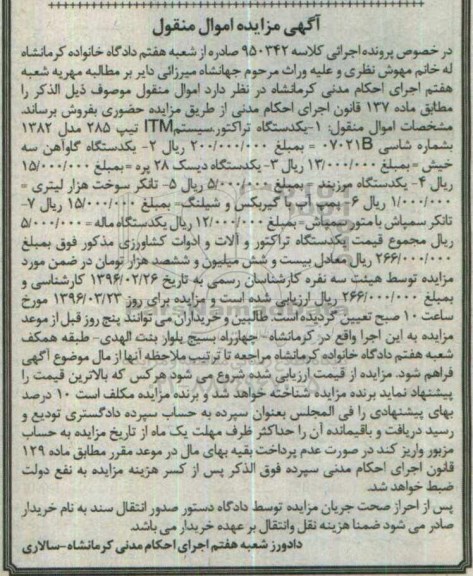 آگهی مزایده اموال منقول
در خصوص پرونده اجرائی کلاسه ۹۵۰۳۴۲ صادره از شعبه هفتم دادگاه خانواده کرمانشاه
له خانم مهوش نظری و علیه وراث مرحوم جهانشاه میرزائی دایر بر مطالبه مهریه شعبه
هفتم اجرای احکام مدنی کرمانشاه در نظر دارد اموال منقول موصوف ذیل الذکر را
مطابق ماده ۱۳۷ قانون اجرای احکام مدنی از طریق مزایده حضوری بفروش برساند.
مشخصات اموال منقول: ۱-یکدستگاه تراکتور.سیستم ITM تیپ ۲۸۵ مدل ۱۳۸۲
بشماره شاسی ۰۷۰۲۱B = بمبلغ ۲۰۰/۰۰۰/۰۰۰ ریال ۲- یکدستگاه گاوآهن سه
خیش = بمبلغ ۱۳/۰۰۰/۰۰۰ ریال ۳- یکدستگاه دیسک ۲۸ پره = بمبلغ ۱۵/۰۰۰/۰۰۰
ریال ۴- یکدستگاه مرزبند = بمبلغ ۵/۰۰۰/۰۰۰ ریال ۵- تانکر سوخت هزار لیتری =
۱/۰۰۰/۰۰۰ ریال ۶- پمپ آب با گیربکس و شیلنگ = بمبلغ ۱۵/۰۰۰/۰۰۰ ریال ۷-
تانکر سمپاش با متور سمپاش = بمبلغ ۱۲/۰۰۰/۰۰۰ ریال یکدستگاه ماله = ۵/۰۰۰/۰۰۰
ریال مجموع قیمت یکدستگاه تراکتور و آلات و ادوات کشاورزی مذکور فوق بمبلغ
۲۶۶/۰۰۰/۰۰۰ ریال معادل بیست و شش میلیون و ششصد هزار تومان در ضمن مورد
مزایده توسط هیئت سه نفره کارشناسان رسمی به تاریخ ۱۳۹۶/۰۲/۲۶ کارشناسی و
بمبلغ ۲۶۶/۰۰۰/۰۰۰ ریال ارزیابی شده است و مزایده برای روز ۱۳۹۶/۰۳/۲۳ مورخ
ساعت ۱۰ صبح تعیین گردیده است طالبین و خریداران می توانند پنج روز قبل از موعد
مزایده به این اجرا واقع در کرمانشاه- چهارراه بسیج بلوار بنت الهدی- طبقه همکف
شعبه هفتم دادگاه خانواده کرمانشاه مراجعه تا ترتیب ملاحظه آنها از مال موضوع آگهی
فراهم شود. مزایده از قیمت ارزیابی شده شروع می شود هرکس که بالاترین قیمت را
پیشنهاد نماید برنده مزایده شناخته خواهد شد و برنده مزایده مکلف است ۱۰ درصد
بهای پیشنهادی را فی المجلس بعنوان سپرده به حساب سپرده دادگستری تودیع و
رسید دریافت و باقیمانده آن را حداکثر ظرف مهلت یک ماه از تاریخ مزایده به حساب
مزبور واریز کند در صورت عدم پرداخت بقیه بهای مال در موعد مقرر مطابق ماده ۱۲۹
قانون اجرای احکام مدنی سپرده فوق الذکر پس از کسر هزینه مزایده به نفع دولت
ضبط خواهد شد.
پس از احراز صحت جریان مزایده توسط دادگاه دستور صدور انتقال سند به نام خریدار
صادر می شود ضمنا هزینه نقل وانتقال بر عهده خریدار می باشد.
دادورز شعبه هفتم اجرای احکام مدنی کرمانشاه-سالاری